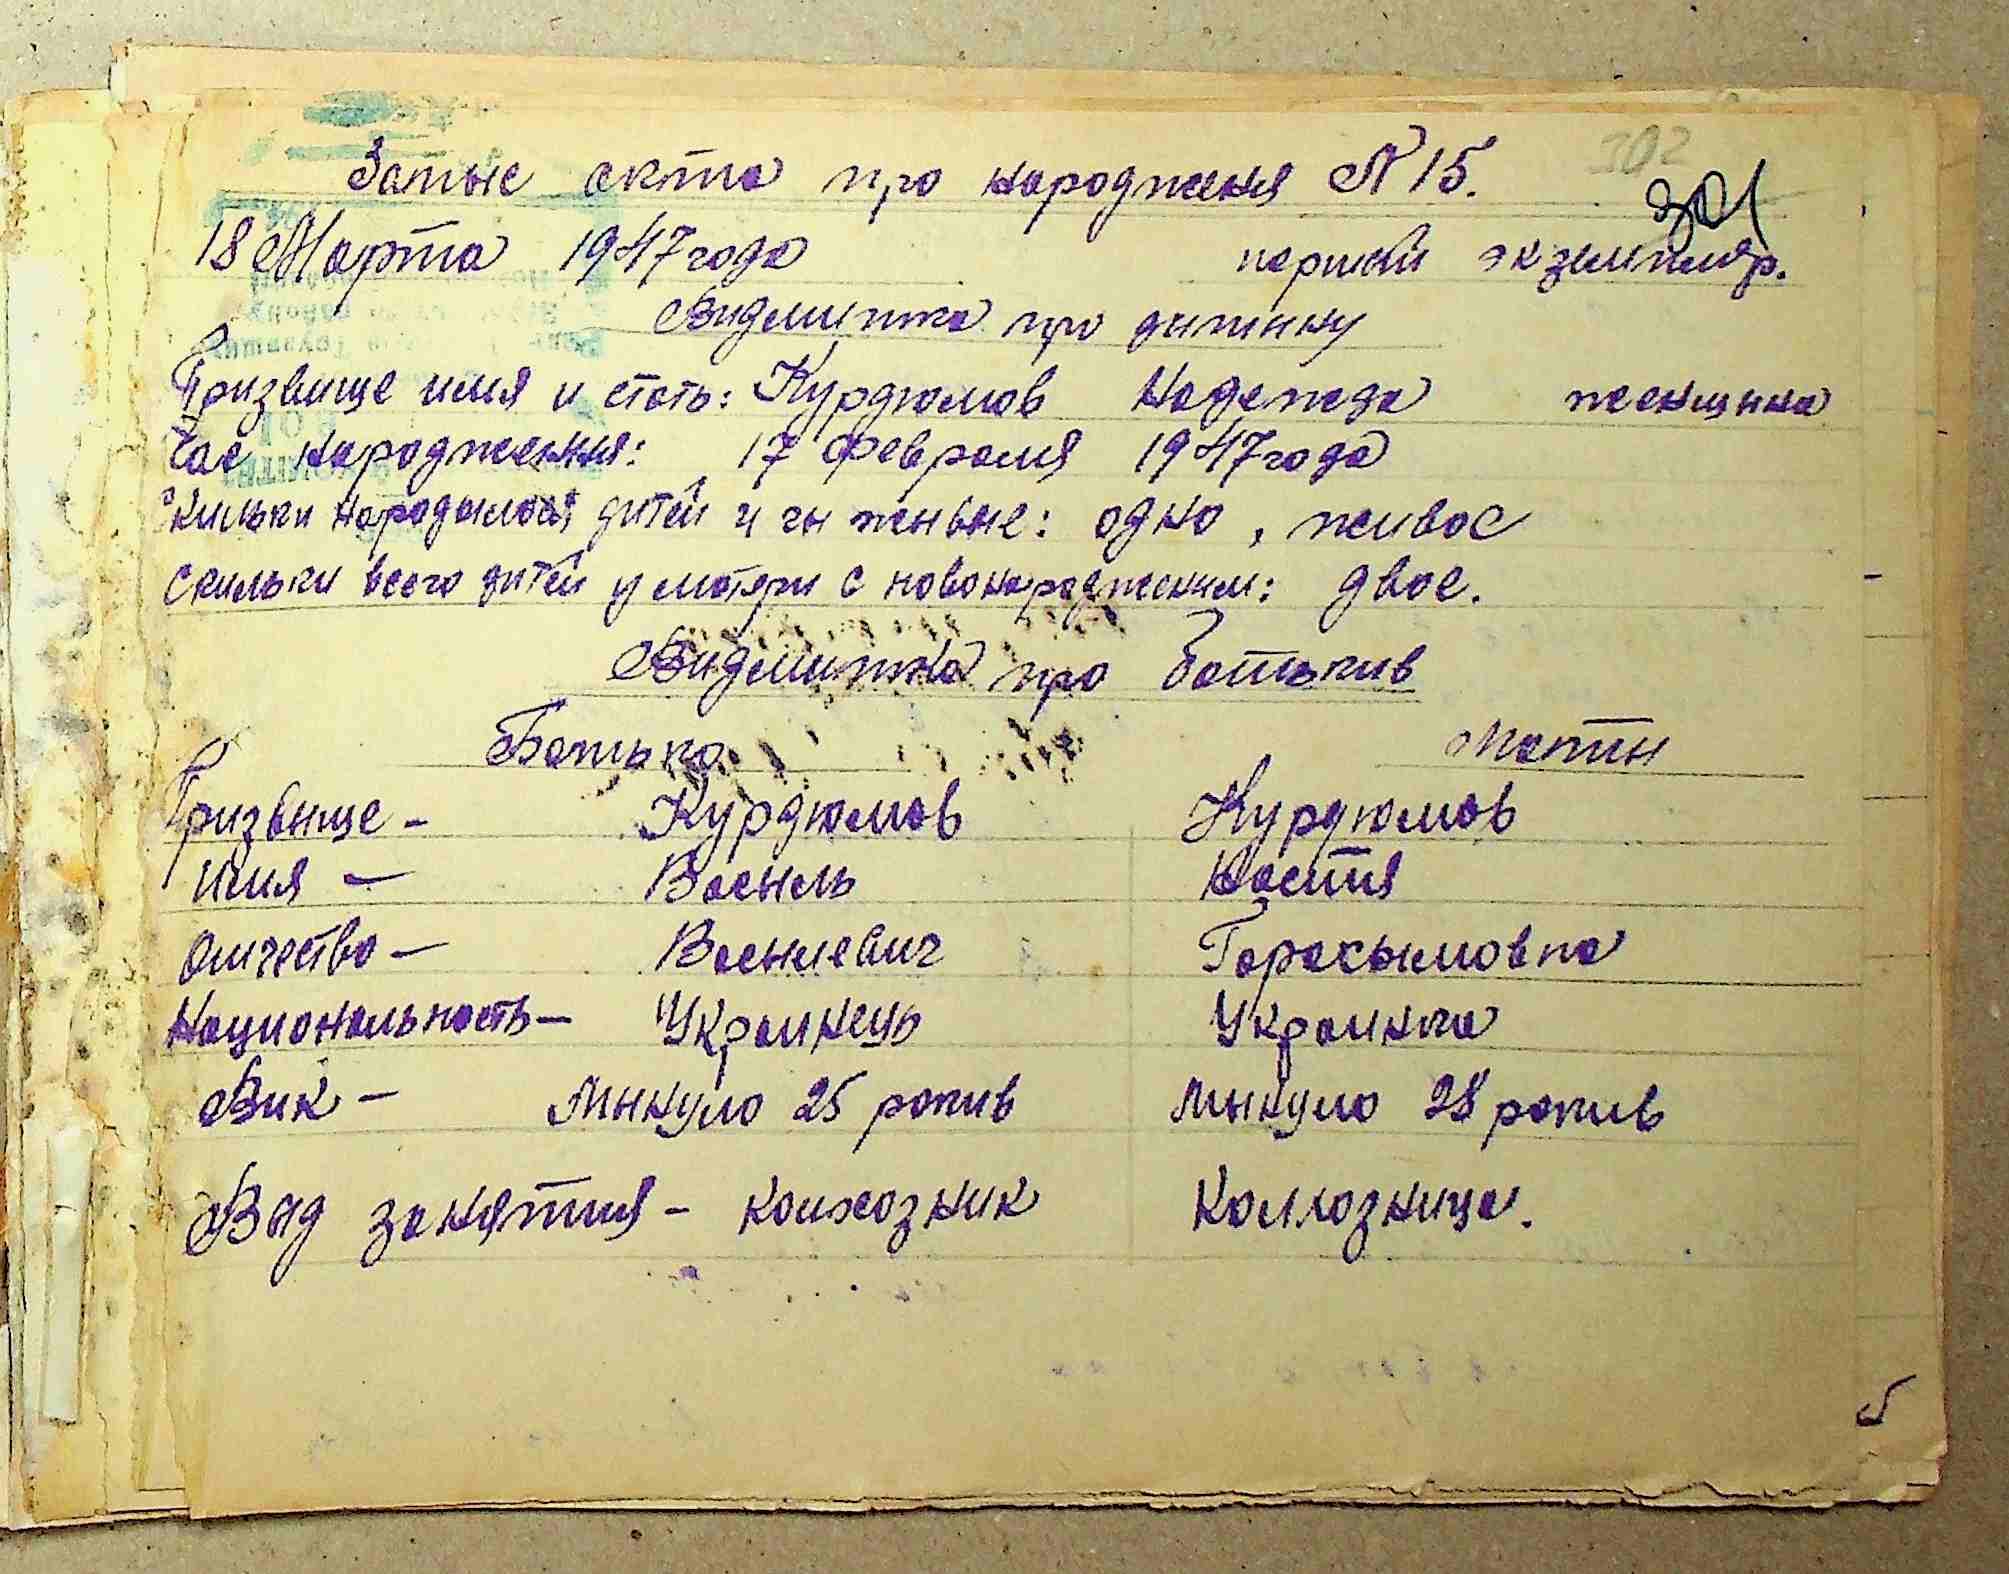 302
Запыс акта про народженя N 15.
301
18 Марта 1947 года перший экземпляр.
Видмитка про дытыну
Призвище имя и стать: Курдюмов Надежда женщына
Час народження: 17 Февраля 1947 года
Скильки народылося дитей и чи жывые: одно, живое
Скильки всего дитей у матери с новонародженим: двое.
Видмитка про батькив
Батько Маты
Призвище - Курдюмов Курдюмов
Имя - Васыль Настия
Отчество - Васылевич Гарасымовна
Национальность - Украинець Украинка
Вик - Мынуло 25 рокив Мынуло 28 рокив
Вид занятия - колхозник Колхозница.
5